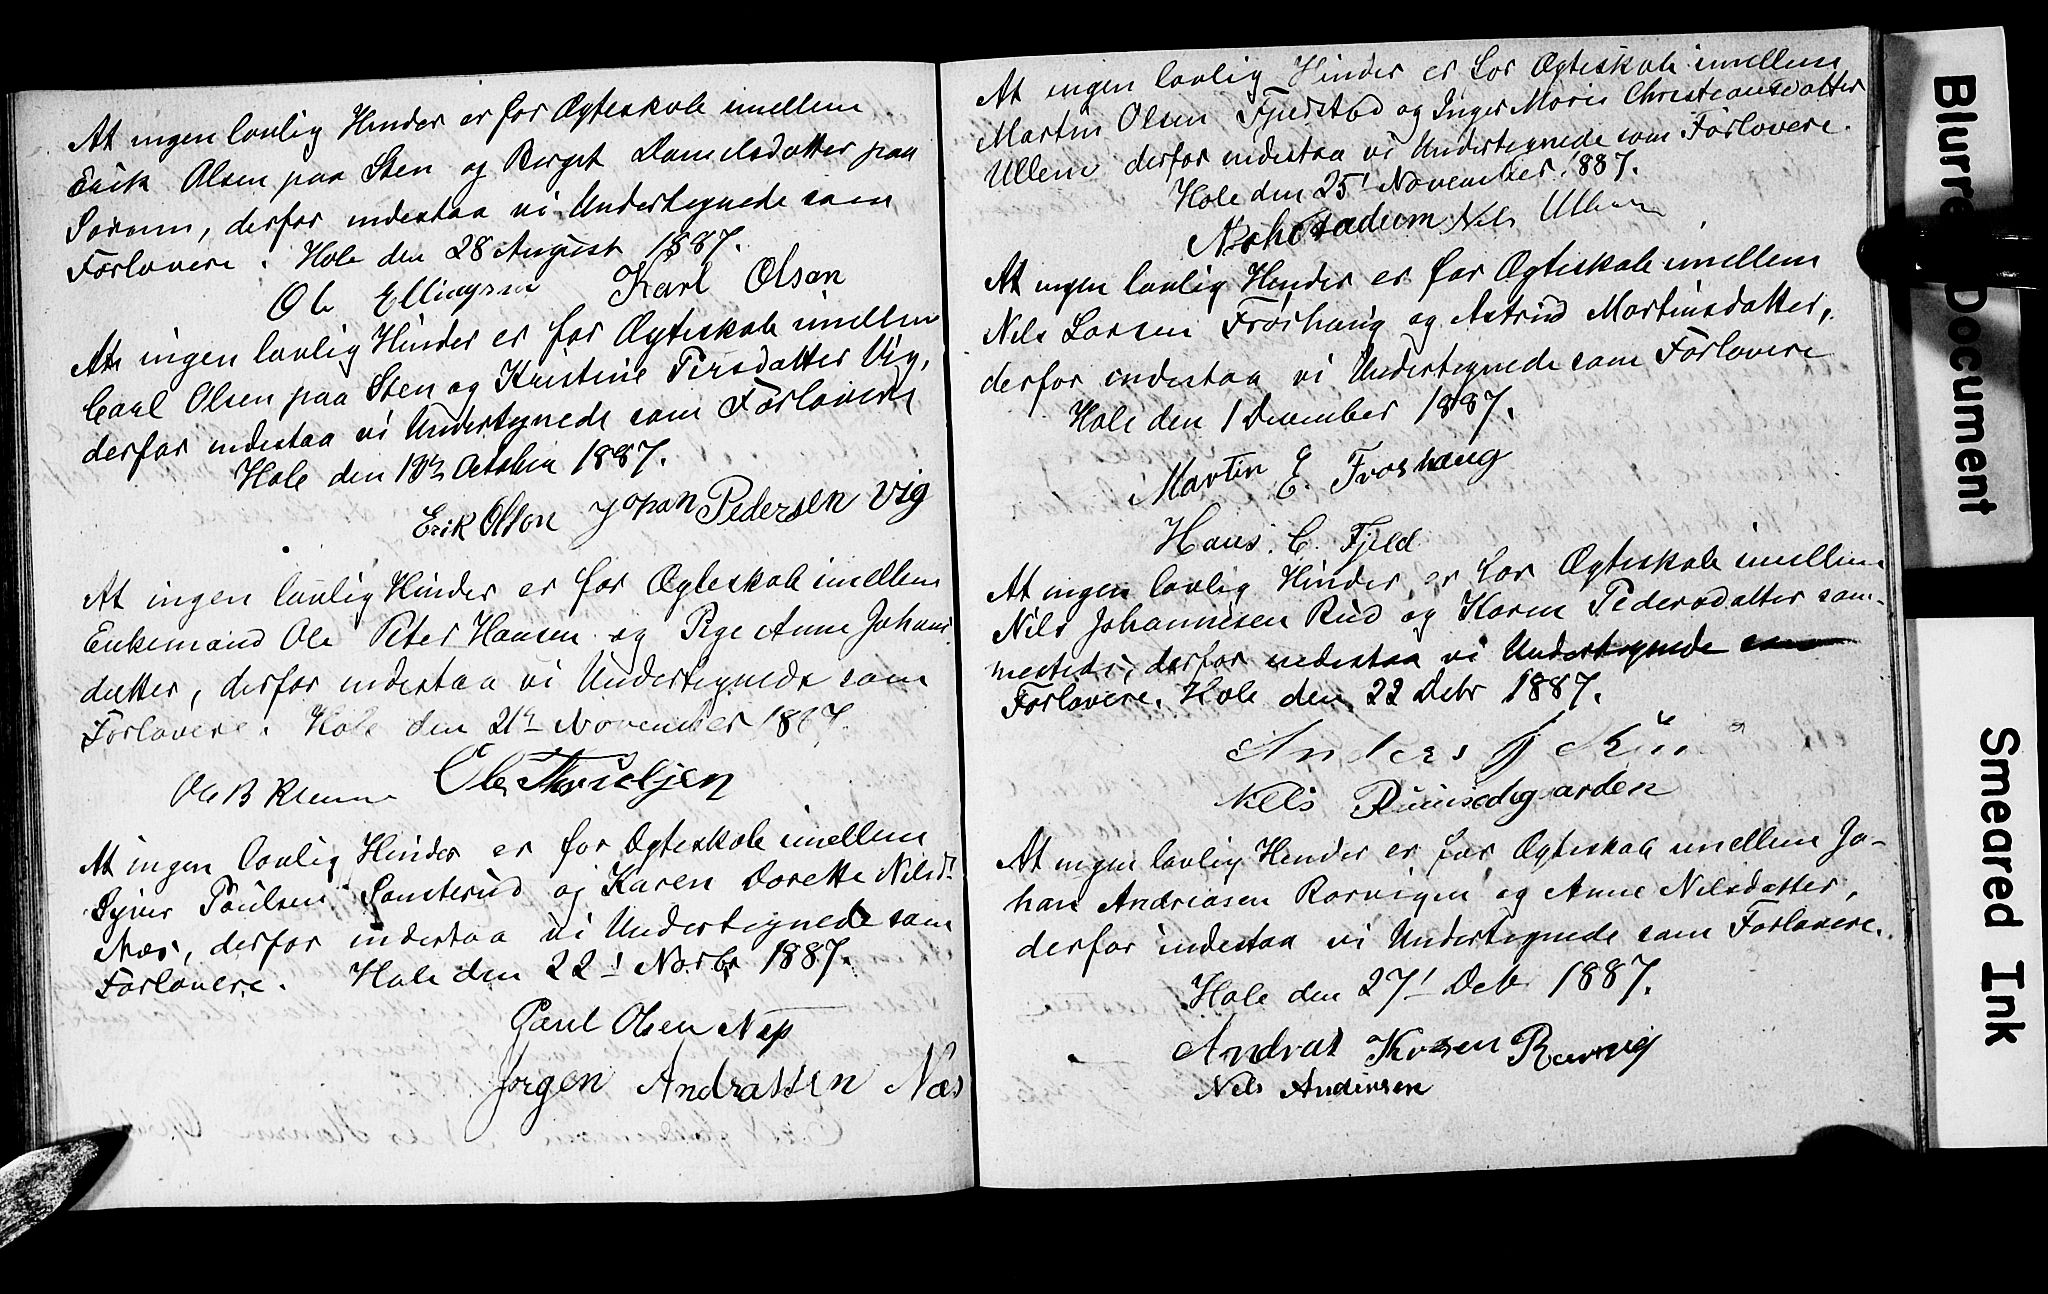 At ingen lovlig Hinder er for Ægteskab imellem
Erik Olsen paa Sten og Berget Danielsdatter paa
Sørum, derfor indestaa vi Undertegnede som
Forlovere. Hole den 28 August 1887.
Ole Ellingsen Karl Olsen
At ingen lovlig Hinder er for Ægteskab imellem
Carl Olsen paa Sten og Kristine Persdatter Vig,
derfor indestaa vi Undertegnede som Forlovere
Hole den October 1887.
Erik Olson Johan Pedersen Vig
At ingen lovlig Hinder er for Ægteskab imellem
Enkemand Ole Peter Hansen og Pige Anne Johans
datter, derfor indestaa vi Undertegnede som
Forlovere. Hole den 21de November 1887.
Ole B
At ingen lovlig Hinder er for Ægteskab imellem
Syver Paulsen Sonsterud og Karen Dorette Nilsd.
Næs, derfor indestaa vi Undertegnede som
Forlovere. Hole den 22' Novbr 1887.
Paul Olsen Næs
Jorgen Andrassen Næs
At ingen lovlig Hinder er for Ægteskab imellem
Martin Olsen Fjeldstad og Inger Marie Christiansdatter
Ullern derfor indestaa vi Undertegnede som Forlovere.
Hole den 25' November 1887.
Stadum Nils Ullern
At ingen lovlig Hinder er for Ægteskab imellem
Nils Larsen Frøshaug og Astrid Martinsdatter,
derfor indestaa vi Undertegnede som Forlovere
Hole den 1 December 1887.
Martin E. Froshaug
Hans. C. Fjeld
At ingen lovlig Hinder er for Ægteskab imellem
Nils Johannesen Rud og Karen Pedersdatter sam-
mesteds, derfor indestaa vi Undertegnede som
Forlovere. Hole den 22 Debr 1887.
Anders
Nels
At ingen lovlig Hinder er for Ægteskab imellem Jo-
han Andreasen Rorvigen og Anne Nilsdatter,
derfor indestaa vi Undertegnede som Forlovere.
Hole den 27' Debr 1887.
Andras
Nels Andersen
Blurred Document
Smeared Ink